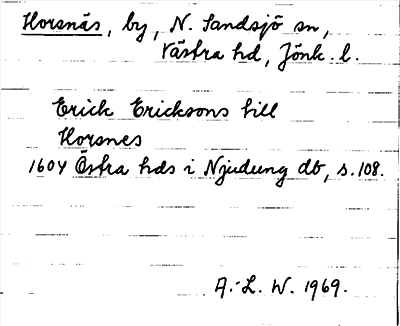 Horsnäs, by, N. Sandsjö sn,
Västra hd, Jönk. l.
Erick Ericksons till
Horsnes
1604 Östra hds i Njudung db, s. 108.
A.-L. W. 1969.